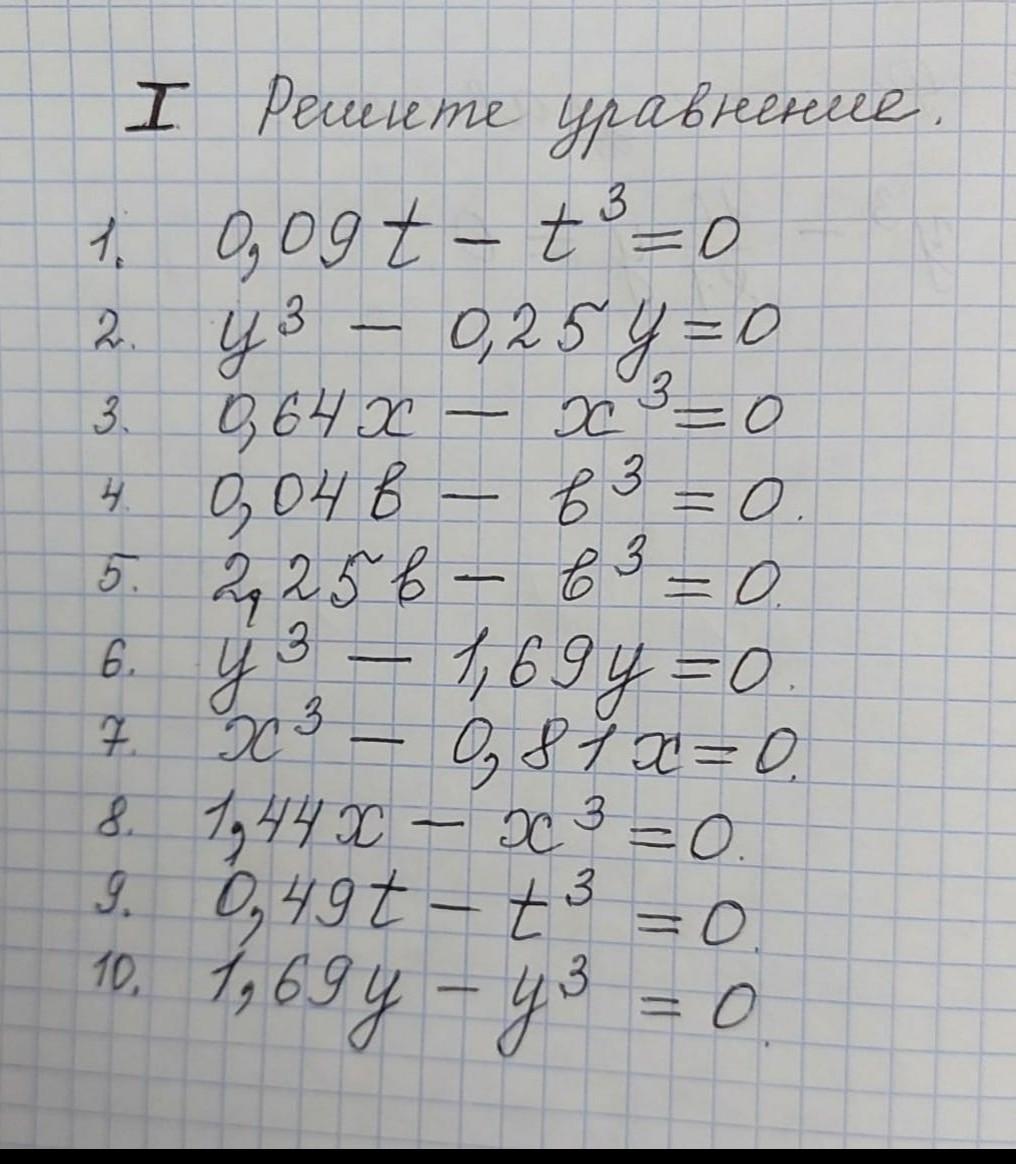 I Решите уравнение.
1. 0,09t - t³ = 0
2. y³ - 0,25y = 0
3. 0,64x - x³ = 0
4. 0,04в - в³ = 0.
5. 2,25в - в³ = 0.
6. y³ - 1,69y = 0.
7. x³ - 0,81x = 0.
8. 1,44x - x³ = 0.
9. 0,49t - t³ = 0.
10. 1,69y - y³ = 0.